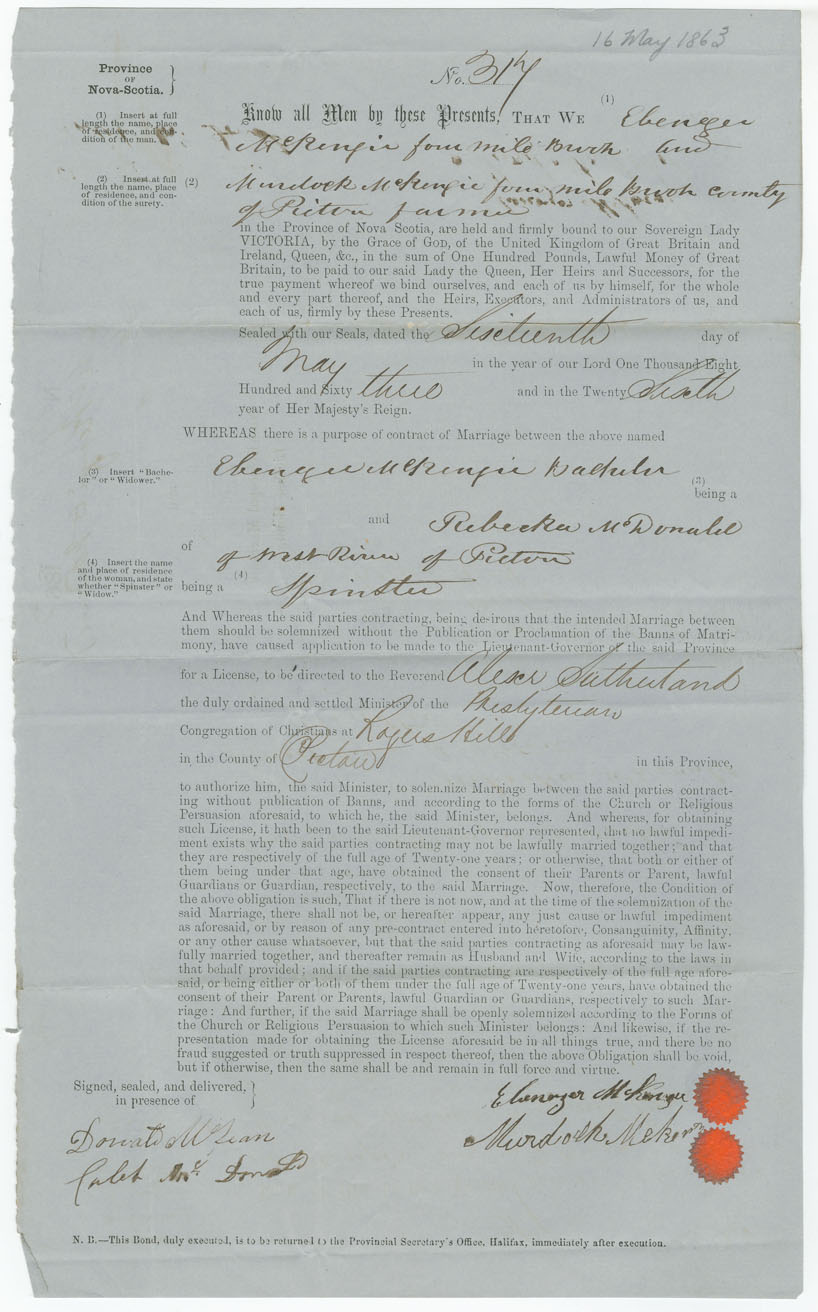 16 May 1863
Province
OF
Nova-Scotia.
No. 317
(1) Insert at full
length the name, place
of residence, and con-
dition of the man.
(1)
Know all Men by these Presents, THAT WE Ebenezer
McKenzie four mile Brook and
(2) Insert at full
length the name, place
of residence, and con-
dition of the surety.
(2) Murdock McKenzie four mile Brook county
of Picton farmer
in the Province of Nova Scotia, are held and firmly bound to our Sovereign Lady
VICTORIA, by the Grace of GOD, of the United Kingdom of Great Britain and
Ireland, Queen, &c., in the sum of One Hundred Pounds, Lawful Money of Great
Britain, to be paid to our said Lady the Queen, Her Heirs and Successors, for the
true payment whereof we bind ourselves, and each of us by himself, for the whole
and every part thereof, and the Heirs, Executors, and Administrators of us, and
each of us, firmly by these Presents.
Sealed with our Seals, dated the Sixteenth day of
May in the year of our Lord One Thousand Eight
Hundred and Sixty three and in the Twenty Sixth
year of Her Majesty's Reign.
WHEREAS there is a purpose of contract of Marriage between the above named
(3) Insert "Bache-
lor" or "Widower."
Ebenezer McKenzie Bachelor
(3)
being a
and Rebecka McDonald
of of West River of Picton
(4) Insert the name
and place of residence
of the woman, and state
whether "Spinster" or
"Widow."
(4)
being a Spinster
And Whereas the said parties contracting, being desirous that the intended Marriage between
them should be solemnized without the Publication or Proclamation of the Banns of Matri-
mony, have caused application to be made to the Lieutenant-Governor of the said Province
for a License, to be directed to the Reverend Alexr Sutherland
the duly ordained and settled Minister of the Presbyterian
Congregation of Christians at Rogers Hill
in the County of Pictou in this Province,
to authorize him, the said Minister, to solemnize Marriage between the said parties contract-
ing without publication of Banns, and according to the forms of the Church or Religious
Persuasion aforesaid, to which he, the said Minister, belongs. And whereas, for obtaining
such License, it hath been to the said Lieutenant-Governor represented, that no lawful impedi-
ment exists why the said parties contracting may not be lawfully married together; and that
they are respectively of the full age of Twenty-one years; or otherwise, that both or either of
them being under that age, have obtained the consent of their Parents or Parent, lawful
Guardians or Guardian, respectively, to the said Marriage. Now, therefore, the Condition of
the above obligation is such, That if there is not now, and at the time of the solemnization of the
said Marriage, there shall not be, or hereafter appear, any just cause or lawful impediment
as aforesaid, or by reason of any pre-contract entered into heretofore, Consanguinity, Affinity,
or any other cause whatsoever, but that the said parties contracting as aforesaid may be law-
fully married together, and thereafter remain as Husband and Wife, according to the laws in
that behalf provided; and if the said parties contracting are respectively of the full age afore-
said, or being either or both of them under the full age of Twenty-one years, have obtained the
consent of their Parent or Parents, lawful Guardian or Guardians, respectively to such Mar-
riage: And further, if the said Marriage shall be openly solemnized according to the Forms of
the Church or Religious Persuasion to which such Minister belongs: And likewise, if the re-
presentation made for obtaining the License aforesaid be in all things true, and there be no
fraud suggested or truth suppressed in respect thereof, then the above Obligation shall be void,
but if otherwise, then the same shall be and remain in full force and virtue.
Signed, sealed, and delivered,
in presence of
Ebenezer McKenzie
Donald McLean
Murdock McKenzie
Caleb McDonald
N. B.—This Bond, duly executed, is to be returned to the Provincial Secretary's Office, Halifax, immediately after execution.